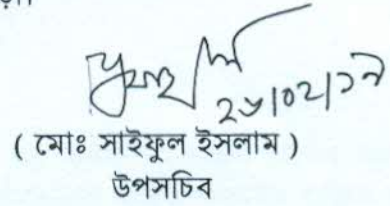 ২৮/০২/১৯
( মোঃ সাইফুল ইসলাম )
উপসচিব